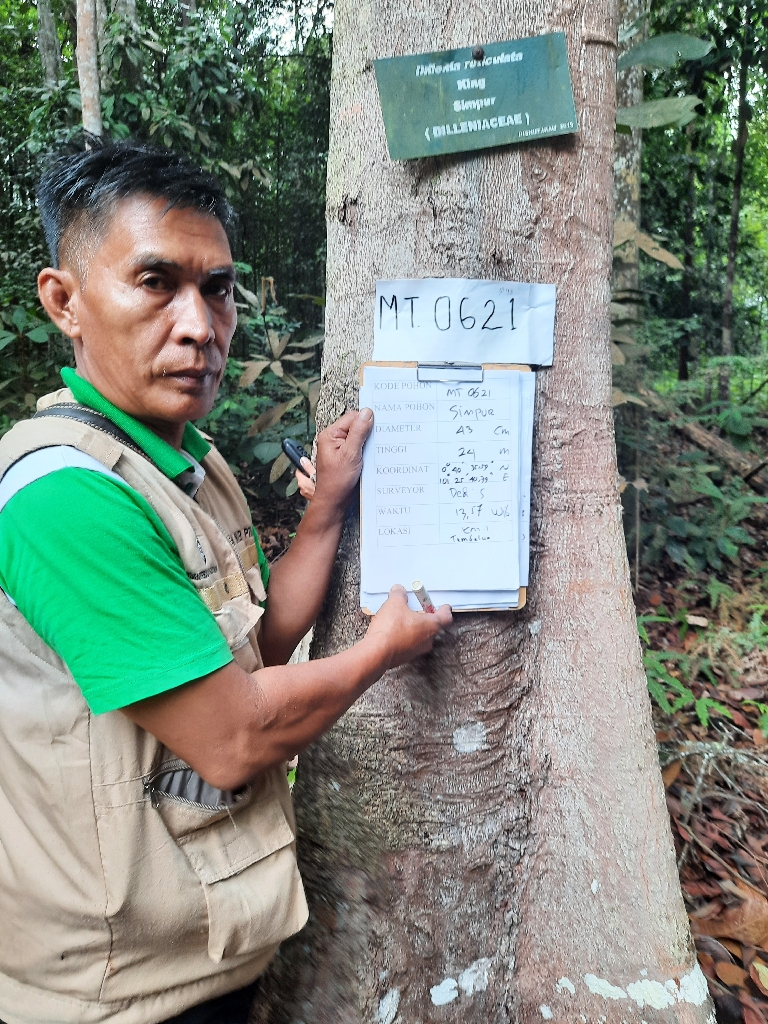 Dillenia reticulata
King
Simpur
( DILLENIACEAE )
MT. 0621
KODE POHON MT 0621
NAMA POHON Simpur
DIAMETER 43 Cm
TINGGI 24 m
KOORDINAT 0° 40'
SURVEYOR
WAKTU 13,57 Wib
LOKASI km 1